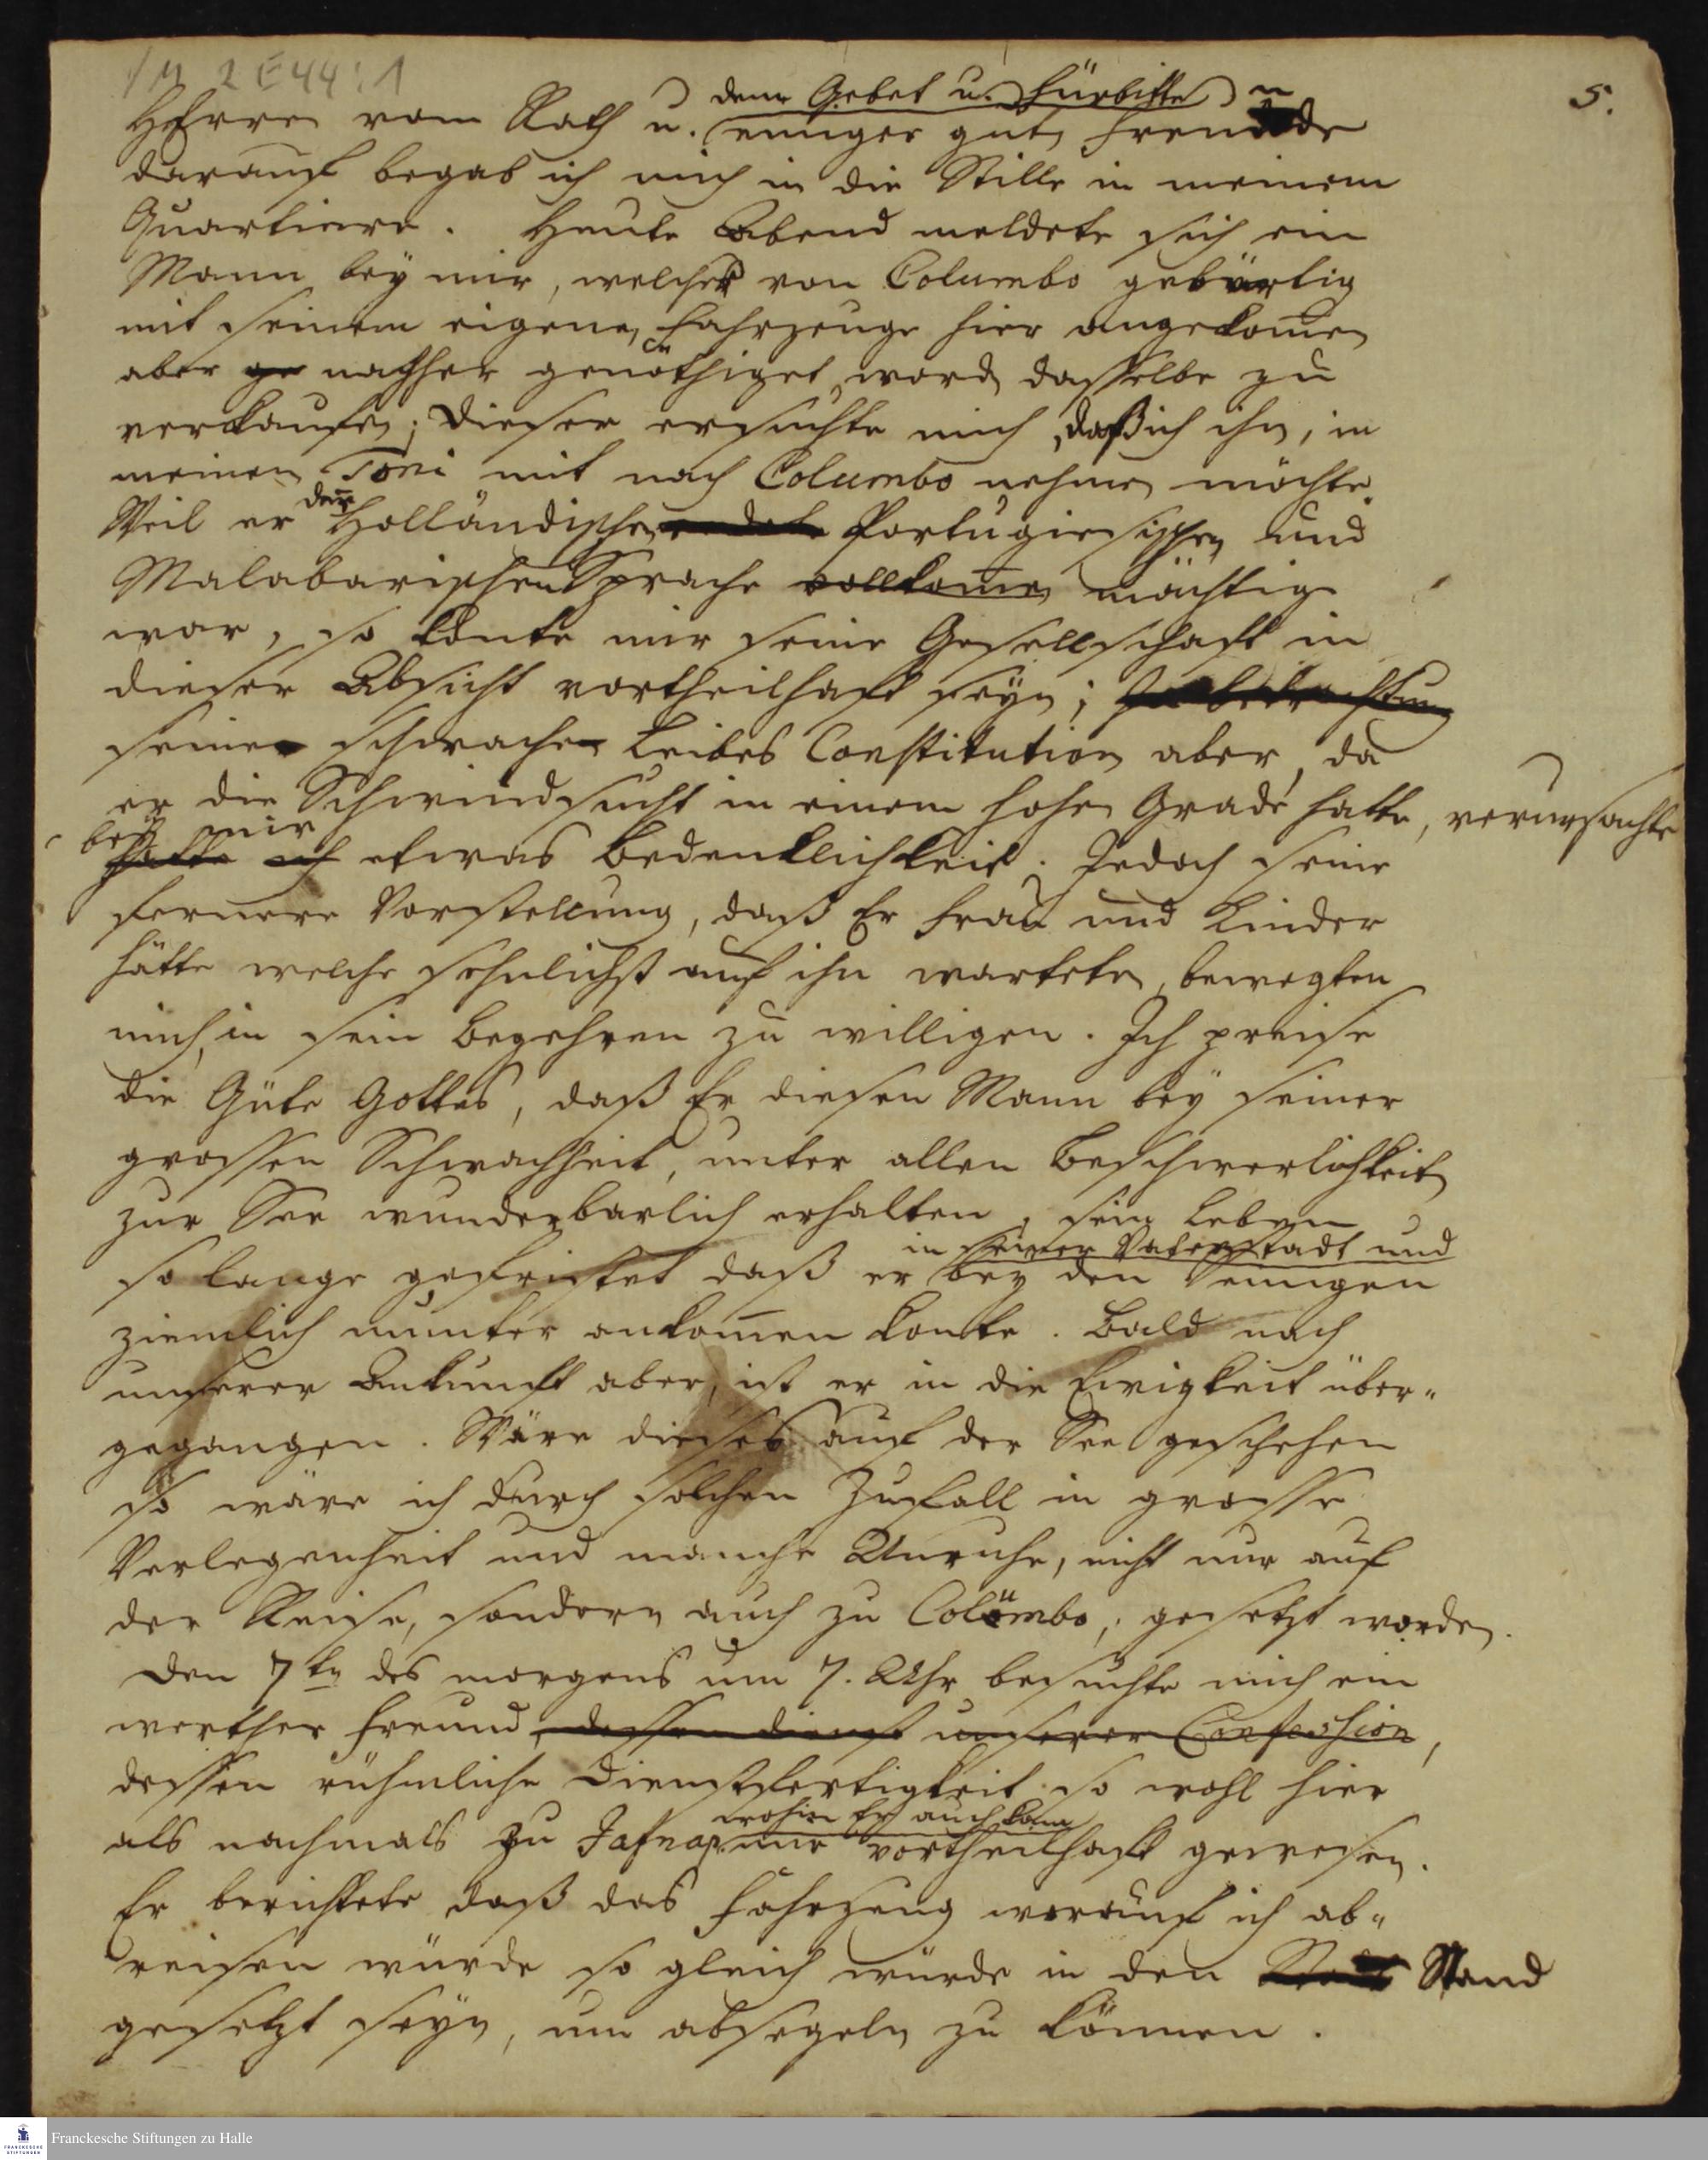 /M 2 E 44 : 1
5.
dem Gebet u. Fürbitte
HErren vom Rath u. einiger guten Freunde
darauf begab ich mich in die Stille in meinem
Quartiere. Heute Abend meldete sich ein
Mann bey mir, welcher von Columbo gebürtig
mit seinem eigenen Fahrzeuge hier angekom̄en
aber ge nachher genöthiget worden dasselbe zu
verkaufen; dieser ersuchte mich, daß ich ihn, in
meinen Toni mit nach Columbo nehmen möchte.
Weil er der Holländischen Portugiesischen und
Malabarischen Sprache vollkom̄en mächtig
war, so konte mir seine Gesellschaft in
dieser Absicht vortheilhaft seyn; In betrachtung
seine schwache Leibes Constitution aber, da
er die Schwindsucht in einem hohen Grade hatte, verursachte
bey mir
hatte ich etwas Bedenklichkeit. Jedoch seine
fernere Vorstellung, daß Er Frau und Kinder
hätte welche sehnlichst auf ihn warteten, bewegten
mich, in sein Begehren zu willigen. Ich preise
die Güte Gottes, daß Er diesen Mann bey seiner
grossen Schwachheit, unter allen Beschwerlichkeiten
zur See wunderbarlich erhalten, sein Leben
in seiner Vaterstadt und
so lange gefristet daß er bey den Seinigen
ziemlich munter ankom̄en konte. Bald nach
unserer Ankunft aber, ist er in die Ewigkeit über-
gegangen. Wäre dieses auf der See geschehen
so wäre ich durch solchen Zufall in grosse
Verlegenheit und manche Unruhe, nicht nur auf
der Reise, sondern auch zu Colombo, gesetzt worden.
Den 7ten des morgens um 7. Uhr besuchte mich ein
werther Freund, dessen dienst unserer Confession,
dessen rühmliche Dienstfertigkeit so wohl hier
wohin Er auch kam
als nachmals zu Jafnap. mir vortheilhaft gewesen.
Er berichtete daß das Fahrzeug worauf ich ab-
reisen würde so gleich würde in den Stand
gesetzt seyn, um absegeln zu können.
Franckesche Stiftungen zu Halle
FRANCKESCHE STIFTUNGEN